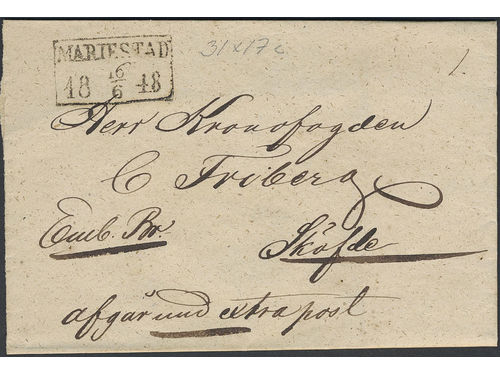 MARIESTAD
18 16/6 48
31x17c
1
Herr Kronofogden
C Friberg
Emb. Br.
Sköfde
afgår und extra post